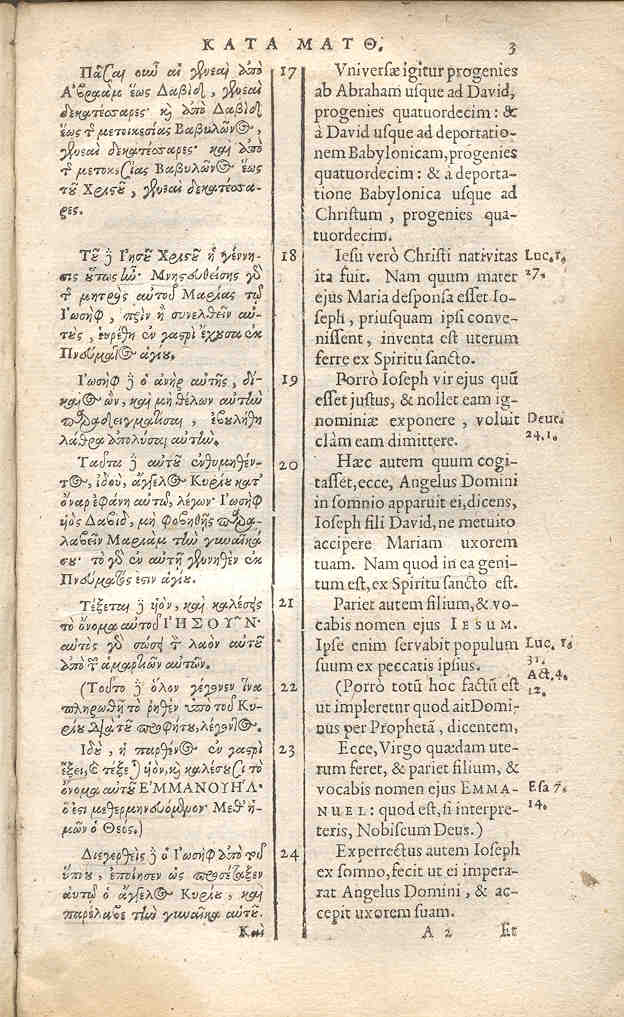 ΚΑΤΑ ΜΑΤΘ. 3
Πᾶσαι οὖν αἱ γενεαὶ ἀπὸ
Ἀβραὰμ ἕως Δαβὶδ, γενεαὶ
δεκατέσσαρες· κὶ ἀπὸ Δαβὶδ
ἕως τῆς μετοικεσίας Βαβυλῶνος,
γενεαὶ δεκατέσσαρες· καὶ ἀπὸ
τῆς μετοικεσίας Βαβυλῶνος ἕως
τοῦ Χριστοῦ, γενεαὶ δεκατέσσα-
ρες.
Τοῦ δὲ Ἰησοῦ Χριστοῦ ἡ γέννη-
σις οὕτως ἦν. Μνηστευθείσης γὸ
τῆς μητρὸς αὐτοῦ Μαρίας τῷ
Ἰωσὴφ, πρὶν ἢ συνελθεῖν αὐ-
τοὺς, εὑρέθη ἐν γαστρὶ ἔχουσα ἐκ
Πνεύματος ἁγίου.
Ἰωσὴφ δὲ ὁ ἀνὴρ αὐτῆς, δί-
καιος ὢν, καὶ μὴ θέλων αὐτὴν
παραδειγματίσαι, ἐβουλήθη
λάθρα ἀπολῦσαι αὐτήν.
Ταῦτα δὲ αὐτοῦ ἐνθυμηθέν-
τος, ἰδοὺ, ἄγγελος Κυρίου κατ'
ὄναρ ἐφάνη αὐτῷ, λέγων· Ἰωσὴφ
υἱὸς Δαβὶδ, μὴ φοβηθῇς παρα-
λαβεῖν Μαριὰμ τὴν γυναῖκά
σου· τὸ γὰρ ἐν αὐτῇ γεννηθὲν ἐκ
Πνεύματός ἐστιν ἁγίου.
Τέξεται δὲ υἱὸν, καὶ καλέσεις
τὸ ὄνομα αὐτοῦ ΙΗΣΟΥ͂Ν·
αὐτὸς γὰρ σώσει τὸν λαὸν αὐτοῦ
ἀπὸ τῶν ἁμαρτιῶν αὐτῶν.
(Τοῦτο δὲ ὅλον γέγονεν ἵνα
πληρωθῇ τὸ ῥηθὲν ὑπὸ τοῦ Κυ-
ρίου διὰ τοῦ προφήτου, λέγοντος.
Ἰδοὺ, ἡ παρθένος ἐν γαστρὶ
ἕξει, καὶ τέξεται υἱὸν, καὶ καλέσουσι τὸ
ὄνομα αὐτοῦ ΕΜΜΑΝΟΥΗΛ·
ὅ ἐστι μεθερμηνευόμενον· Μεθ' ἡ-
μῶν ὁ Θεός.)
Διεγερθεὶς δὲ ὁ Ἰωσὴφ ἀπὸ τοῦ
ὕπνου, ἐποίησεν ὡς προσέταξεν
αὐτῷ ὁ ἄγγελος Κυρίου, καὶ
παρέλαβε τὴν γυναῖκα αὐτοῦ.
Καὶ
17 Vniversæ igitur progenies
ab Abraham usque ad David,
progenies quatuordecim: &
à David usque ad deportatio-
nem Babylonicam, progenies
quatuordecim: & à deporta-
tione Babylonica usque ad
Christum, progenies qua-
tuordecim.
18 Iesu verò Christi nativitas Luc. 1,
ita fuit. Nam quum mater 27.
ejus Maria desponsa esset Io-
seph, priusquam ipsi conve-
nissent, inventa est uterum
ferre ex Spiritu sancto.
19 Porrò Ioseph vir ejus quũ
esset justus, & nollet eam ig-
nominiæ exponere, voluit Deut.
clàm eam dimittere. 24.1.
20 Hæc autem quum cogi-
tasset, ecce, Angelus Domini
in somnio apparuit ei, dicens,
Ioseph fili David, ne metuito
accipere Mariam uxorem
tuam. Nam quod in ea geni-
tum est, ex Spiritu sancto est.
21 Pariet autem filium, & vo-
cabis nomen ejus IESUM.
Ipse enim servabit populum Luc. 1,
suum ex peccatis ipsius. 31.
Act. 4.
22 (Porrò totũ hoc factũ est 12.
ut impleretur quod ait Domi-
nus per Prophetã, dicentem,
23 Ecce, Virgo quædam ute-
rum feret, & pariet filium, &
vocabis nomen ejus EMMA- Esa 7.
NUEL: quod est, si interpre- 14.
teris, Nobiscum Deus.)
24 Experrectus autem Ioseph
ex somno, fecit ut ei impera-
rat Angelus Domini, & ac-
cepit uxorem suam.
A 2 Et